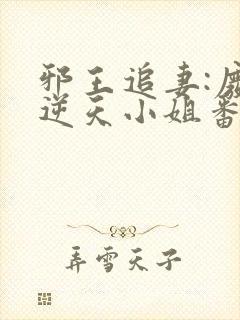 邪王追妻:廢
逆天小姐番
弄雪天子